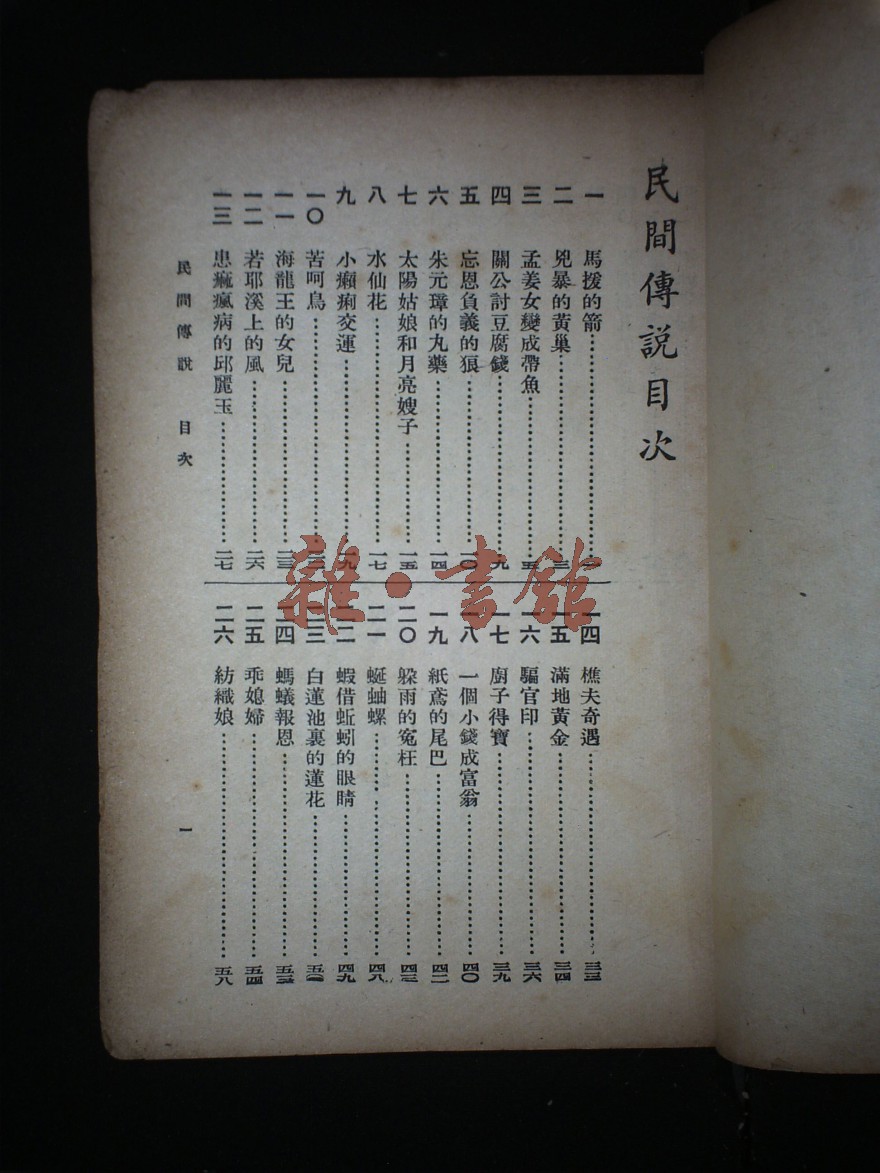 民間傳說目次
一 馬援的箭
二 兇暴的黃巢
三 孟姜女變成帶魚
四 關公討豆腐錢
五 忘恩負義的狼
六 朱元璋的丸藥 一四
七 太陽姑娘和月亮嫂子 一五
八 水仙花 一七
九 小癩痢交運 一九
一〇 苦呵鳥
一一 海龍王的女兒 二三
一二 若耶溪上的風 二六
一三 患痲瘋病的邱麗玉 二七
一四 樵夫奇遇 三三
一五 滿地黃金 三四
一六 騙官印 三六
一七 廚子得寶 三九
一八 一個小錢成富翁 四〇
一九 紙鳶的尾巴 四二
二〇 躲雨的冤枉 四三
二一 蜒蚰螺 四八
二二 蝦借蚯蚓的眼睛 四九
二三 白蓮池裏的蓮花
二四 螞蟻報恩 五三
二五 乖媳婦 五四
二六 紡織娘 五八
民間傳說 目次 一
雜·書館